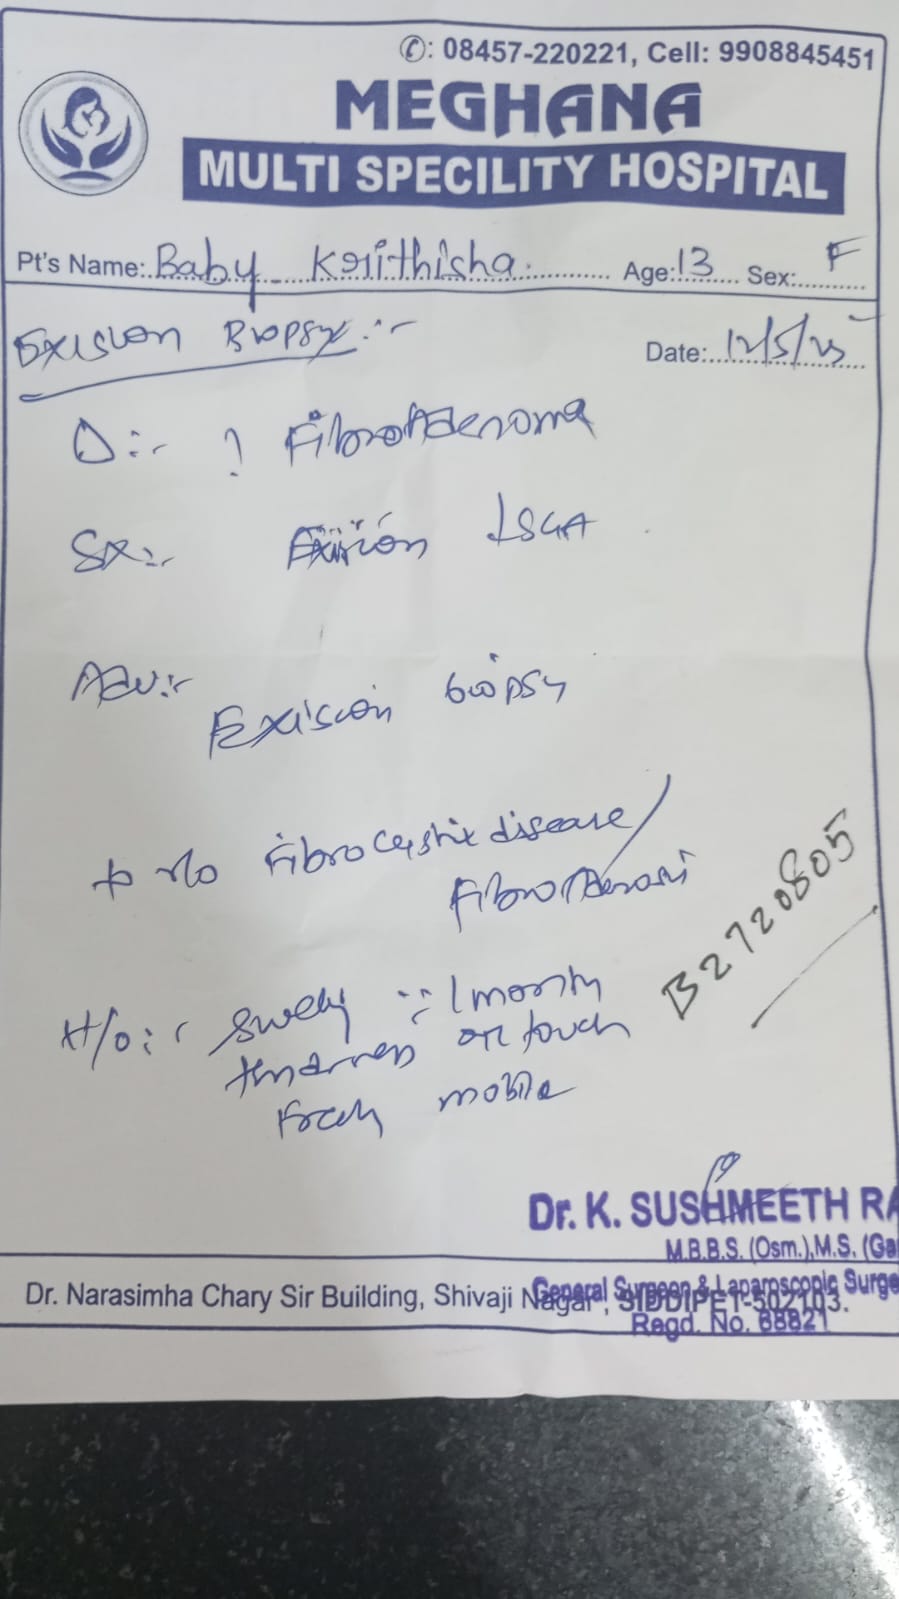 ✆: 08457-220221, Cell: 9908845451
MEGHANA
MULTI SPECILITY HOSPITAL
Pt's Name: Baby Krithisha Age: 13 Sex: F
Exision Biopsy:-
Date: 12/5/25
D:- ? FibroAdenoma
Sx:- Exision ↓SGA
Adv:-
Exision biopsy
to r/o Fibrocystic disease/
H/o:- swelly :: 1 month
on touch
mobile
B2720805
Dr. K. SUSHMEETH RA
M.B.B.S. (Osm.), M.S. (Ga
General Surgeon & Laparoscopic Surge
Dr. Narasimha Chary Sir Building, Shivaji Nagar, SIDDIPET-502103.
Regd. No. 68821